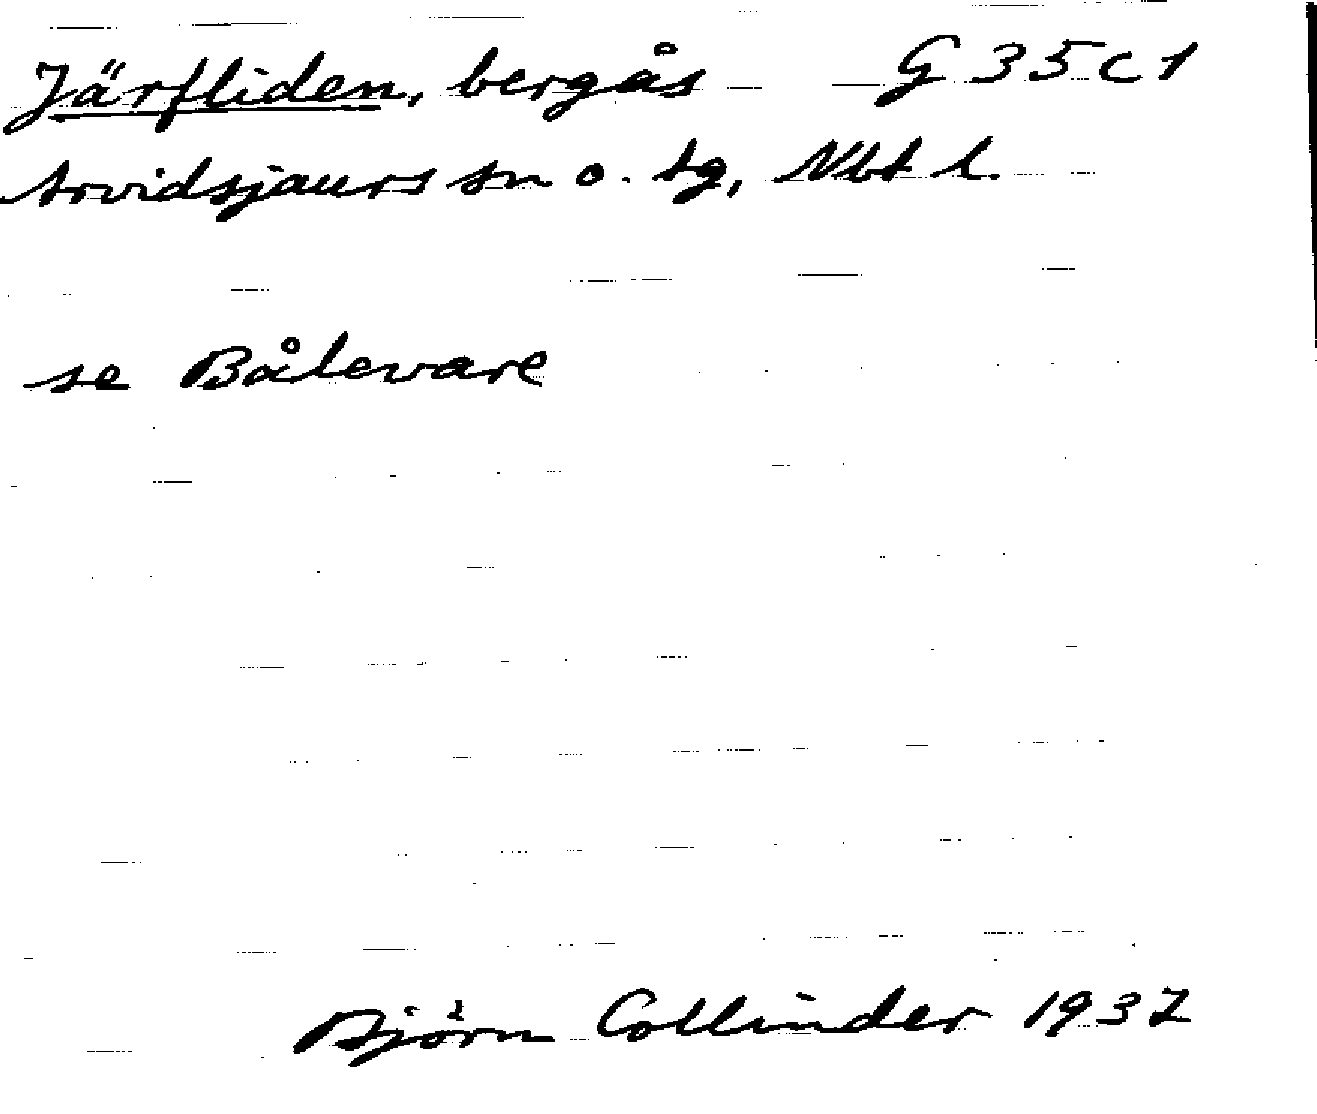 Järfliden, bergås G 35 c 1
Arvidsjaurs sn o. tg, Nbt l.
se Bålevare
Björn Collinder 1937